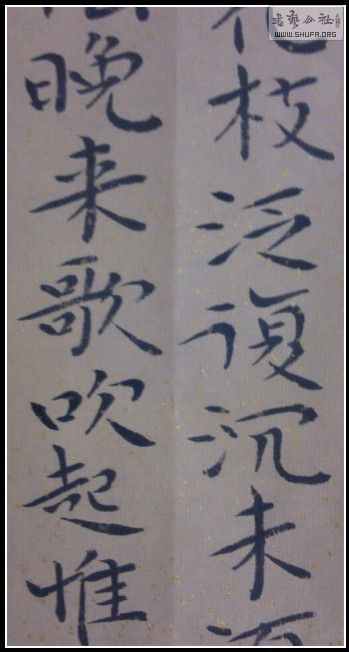 枝泛復沉未
晚来歌吹起惟
书艺公社
WWW.SHUFA.ORG